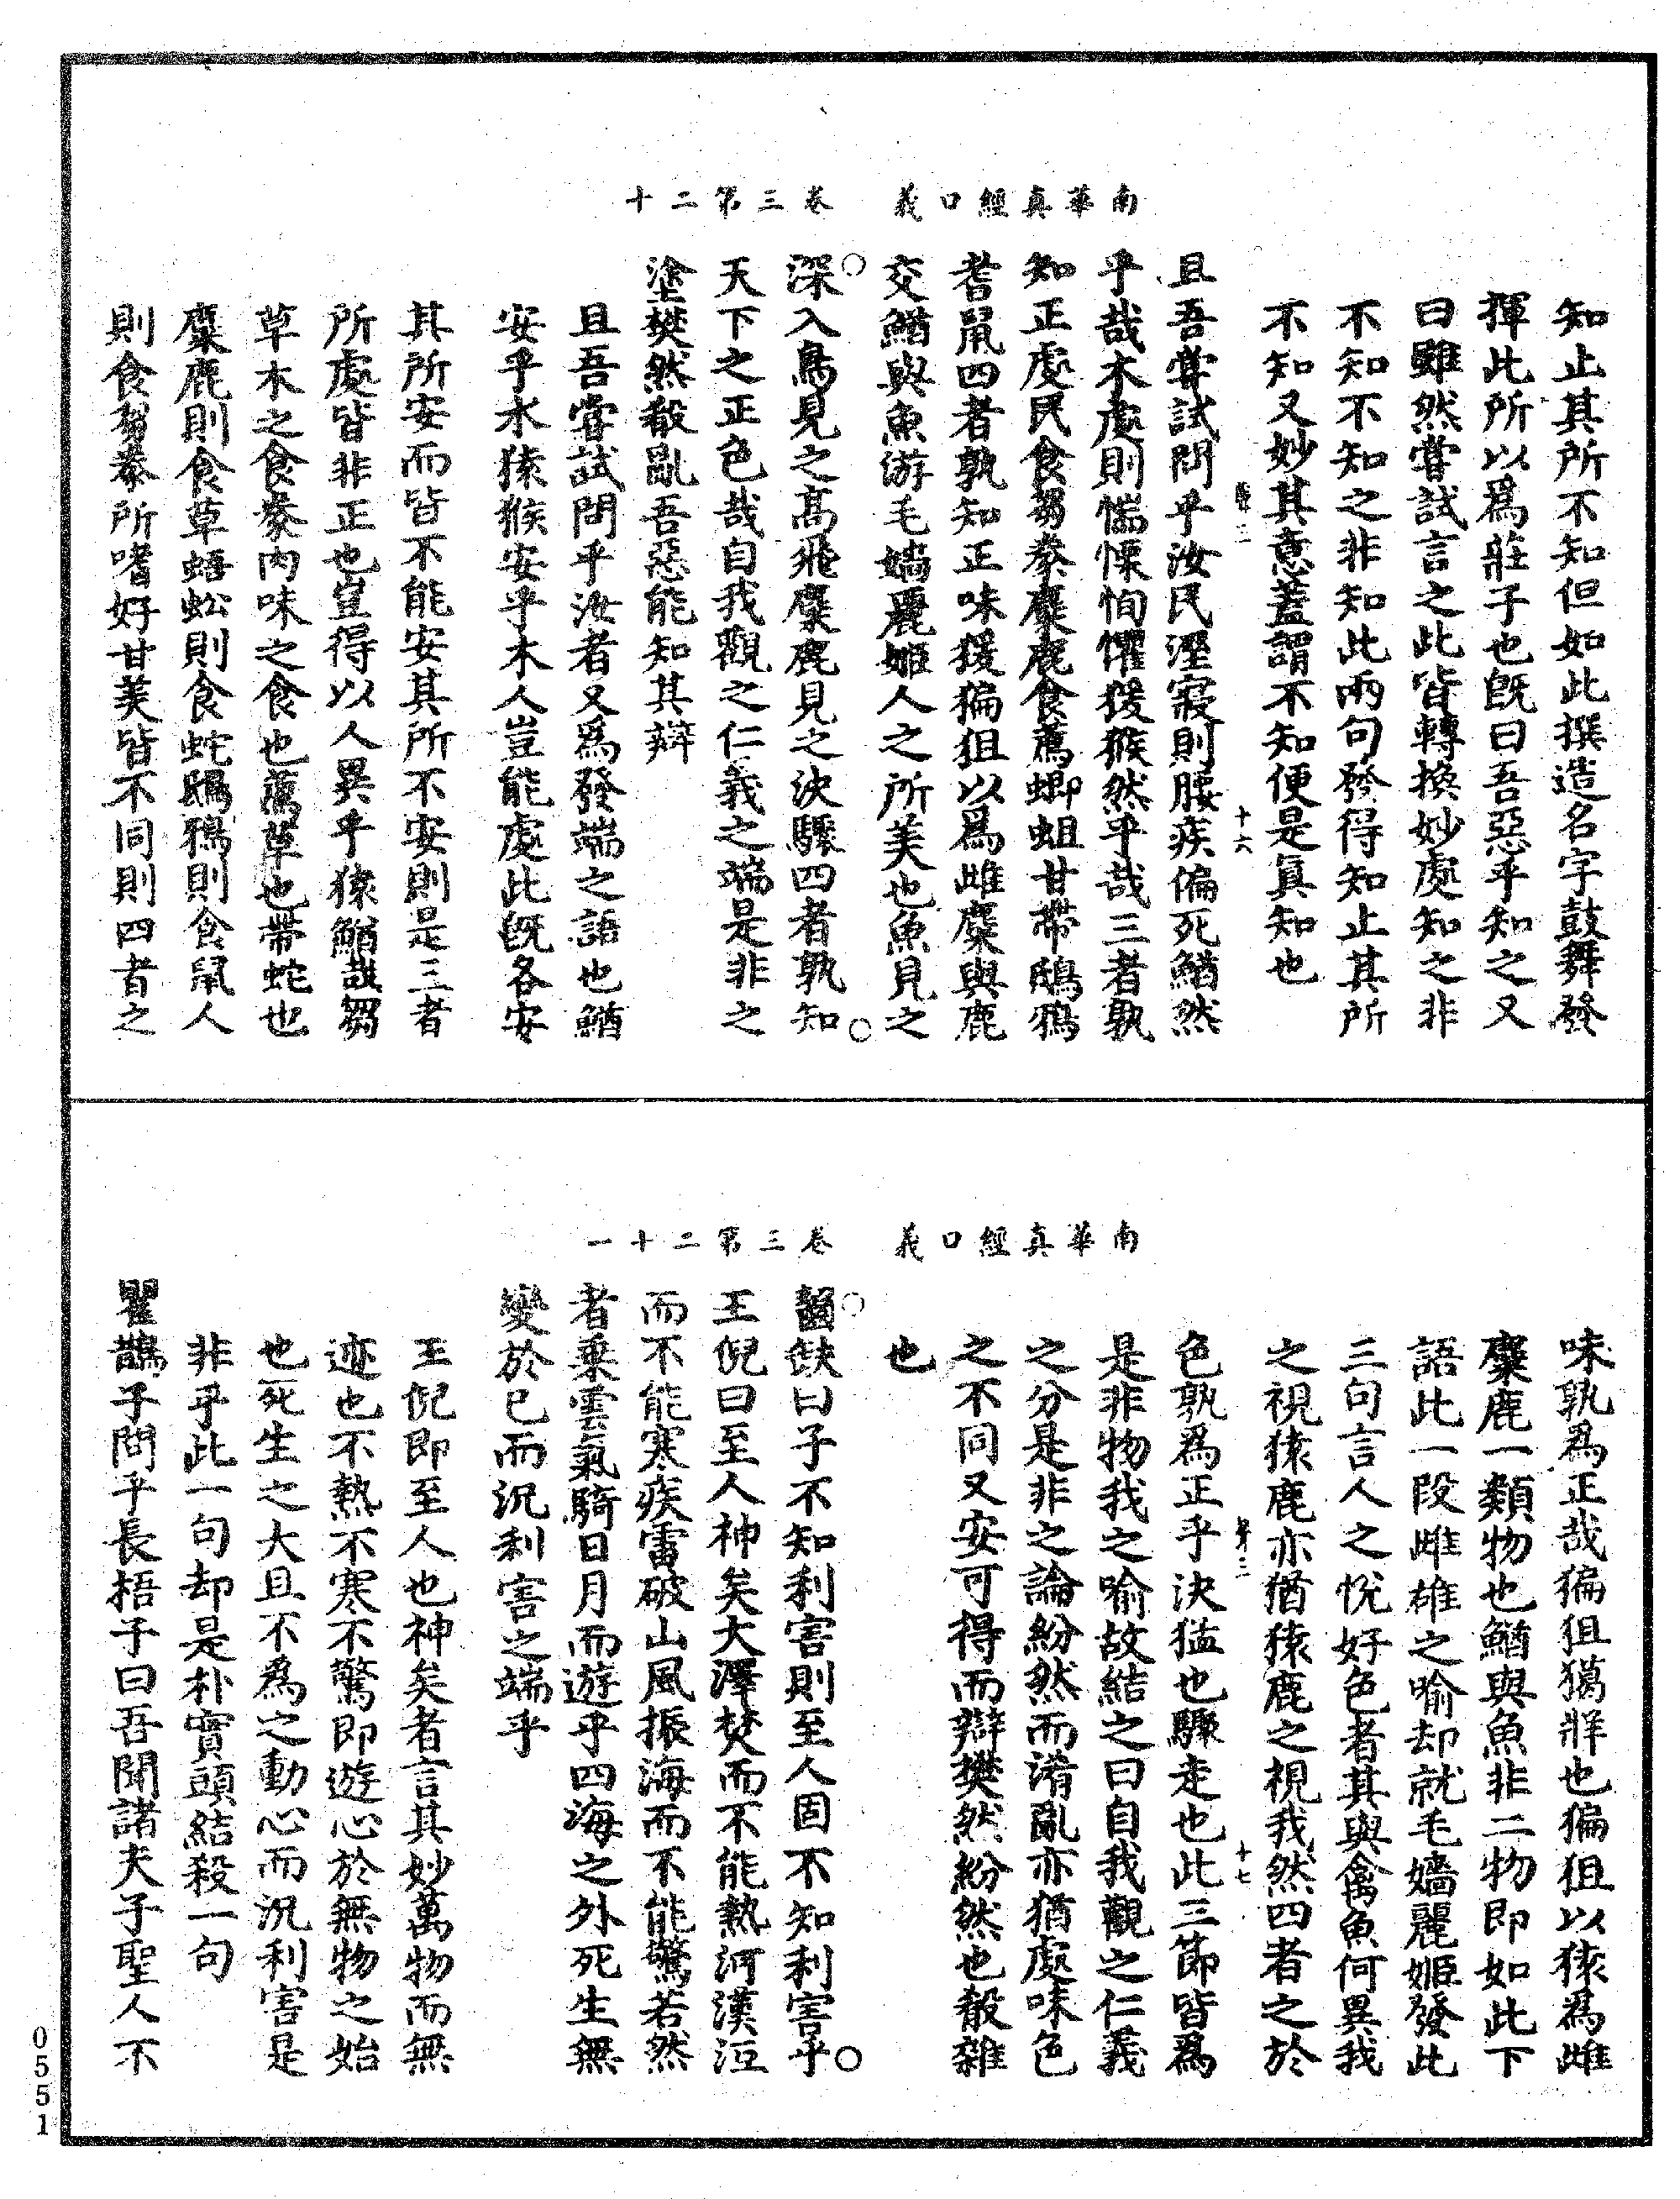 南華真經口義　卷三第二十
知止其所不知但如此撰造名字鼓舞發
揮此所以為莊子也既曰吾惡乎知之又
曰雖然嘗試言之此皆轉換妙處知之非
不知不知之非知此兩句發得知止其所
不知又妙其意蓋謂不知便是真知也
十六
且吾嘗試問乎汝民溼寢則腰疾偏死鰌然
乎哉木處則惴慄恂懼猨猴然乎哉三者孰
知正處民食芻豢麋鹿食薦蝍蛆甘帶鴟鴉
耆鼠四者孰知正味猨猵狙以為雌麋與鹿
交鰌與魚游毛嬙麗姬人之所美也魚見之
深入鳥見之高飛麋鹿見之決驟四者孰知
天下之正色哉自我觀之仁義之端是非之
塗樊然殽亂吾惡能知其辯
且吾嘗試問乎汝者又為發端之語也鰌
安乎水猿猴安乎木人豈能處此既各安
其所安而皆不能安其所不安則是三者
所處皆非正也豈得以人異乎猿鰌哉芻
草木之食豢肉味之食也薦草也帶蛇也
麋鹿則食草蝍蛆則食蛇鴟鴉則食鼠人
則食芻豢所嗜好甘美皆不同則四者之
南華真經口義　卷三第二十一
味孰為正哉猵狙獦牂也猵狙以猿為雌
麋鹿一類物也鰌與魚非二物即如此下
語此一段雌雄之喻却就毛嬙麗姬發此
三句言人之悅好色者其與禽魚何異我
之視猿鹿亦猶猿鹿之視我然四者之於
十七
色孰為正乎決猛也驟走也此三節皆為
是非物我之喻故結之曰自我觀之仁義
之分是非之論紛然而淆亂亦猶處味色
之不同又安可得而辯樊然紛然也殽雜
也
齧缺曰子不知利害則至人固不知利害乎
王倪曰至人神矣大澤焚而不能熱河漢沍
而不能寒疾雷破山風振海而不能驚若然
者乘雲氣騎日月而遊乎四海之外死生無
變於己而況利害之端乎
王倪即至人也神矣者言其妙萬物而無
迹也不熱不寒不驚即遊心於無物之始
也死生之大且不為之動心而況利害是
非乎此一句却是朴實頭結殺一句
瞿鵲子問乎長梧子曰吾聞諸夫子聖人不
0551